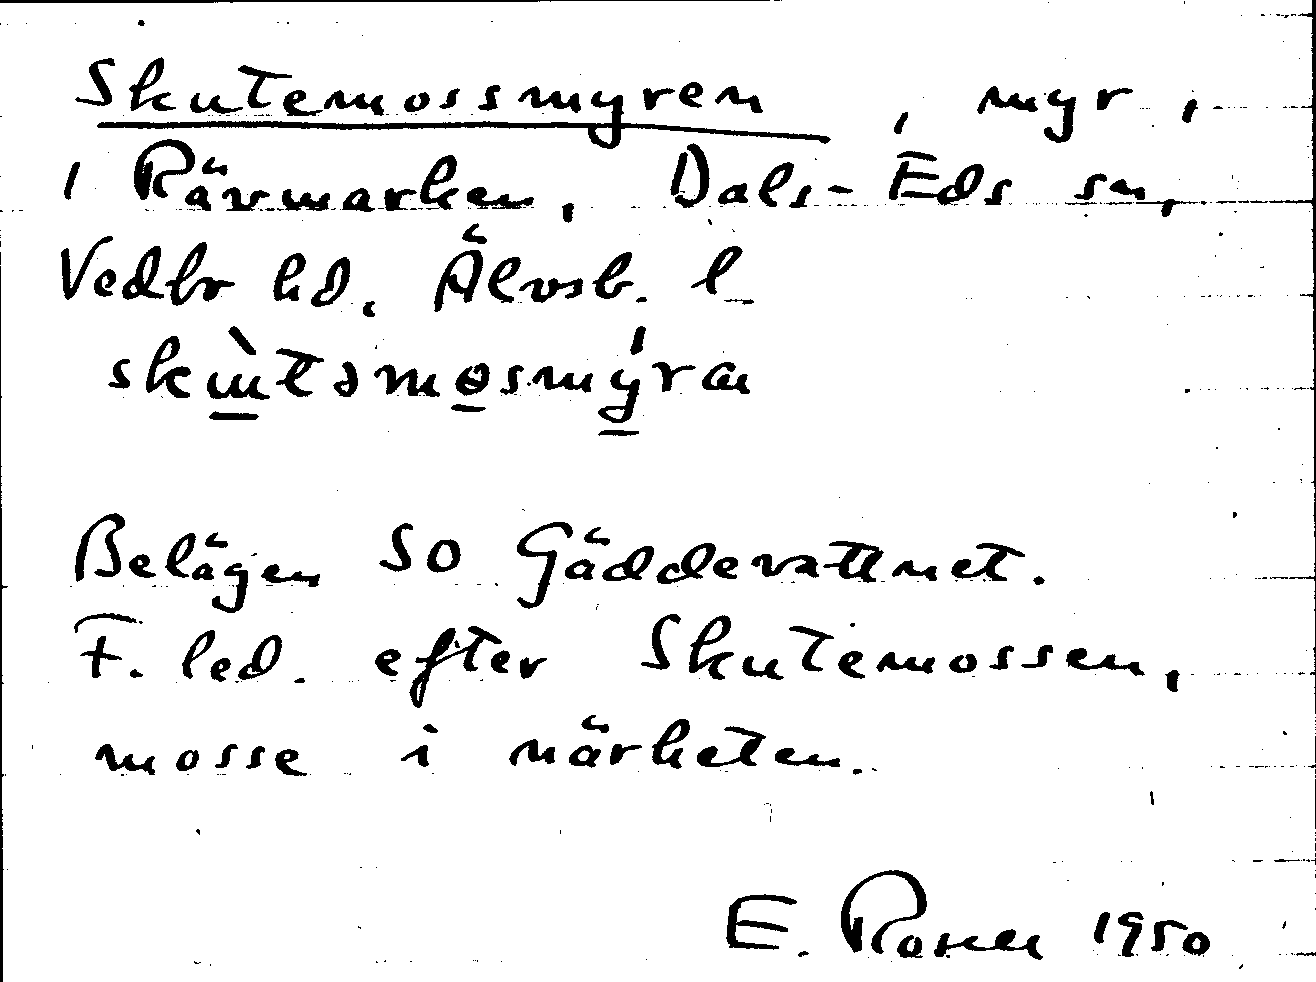 Skutemossmyren, myr,
i Rävmarken, Dals-Eds sn,
Vedbr hd. Älvsb. l
Belägen SO Gäddevattnet.
F. led. efter Skutemossen,
mosse i närheten.
E. Rosell 1950